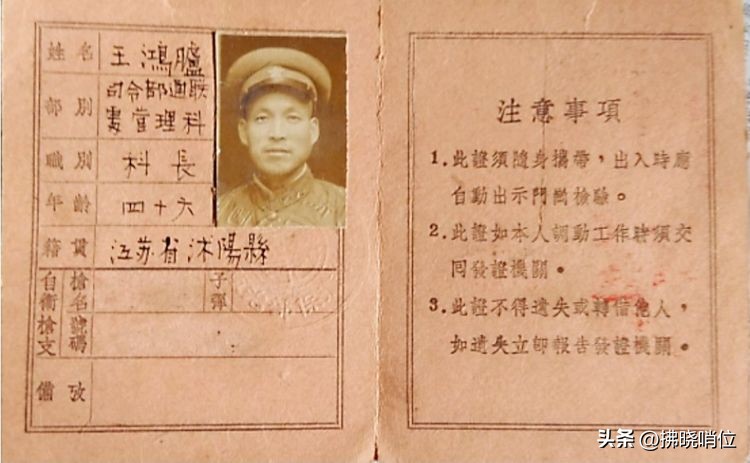 姓名 王鴻臚
部別 司令部通联
婁管理科
職別 科長
年齡 四十六
籍貫 江苏省沭陽縣
自衛槍支 槍名號碼 子彈
備攷
注意事項
1.此證須隨身攜帶，出入時應
自動出示門崗檢驗。
2.此證如本人調動工作時須交
回發證機關。
3.此證不得遺失或轉借他人，
如遺失立即報告發證機關。
头条 @拂晓哨位